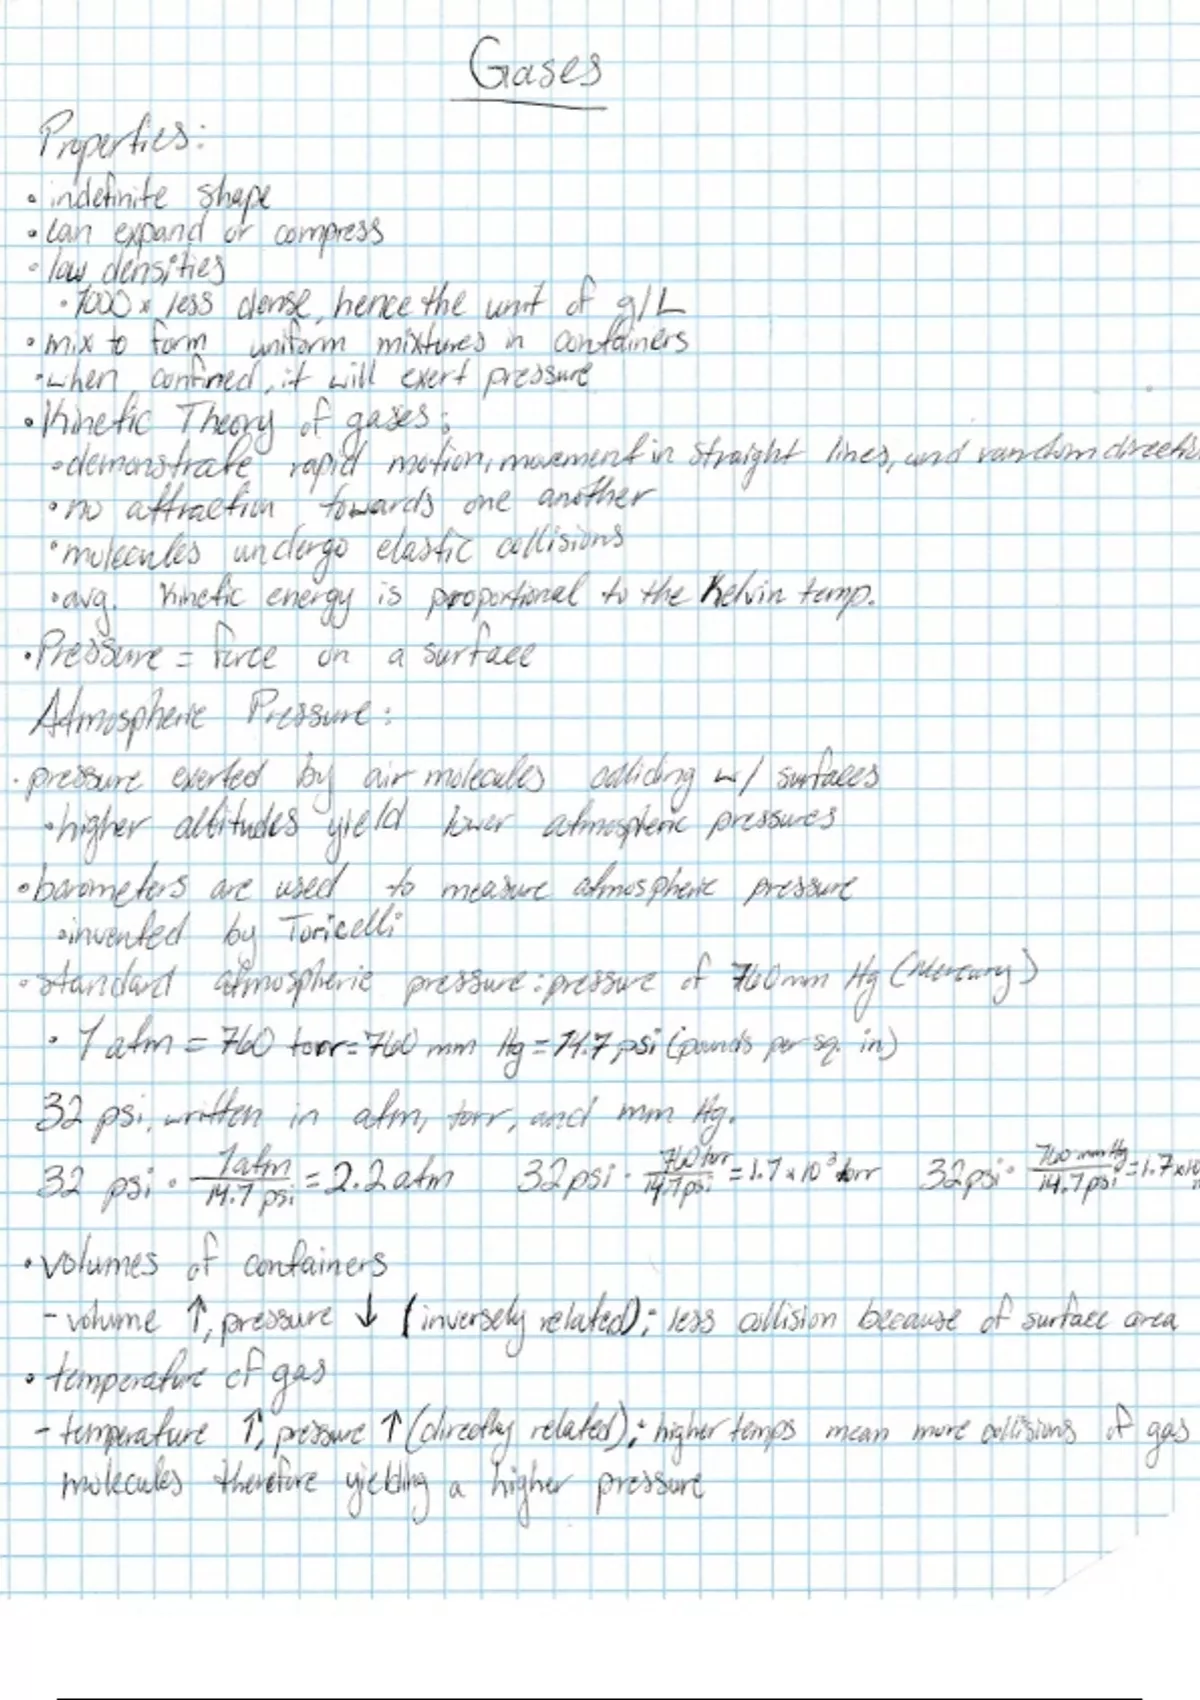 Gases
Properties:
• indefinite shape
• can expand or compress
• low densities
• 1000x less dense, hence the unit of g/L
• mix to form uniform mixtures in containers
• when confined, it will exert pressure
• Kinetic Theory of gases:
• demonstrate rapid motion, movement in straight lines, and random directi
• no attraction towards one another
• molecules undergo elastic collisions
• avg. kinetic energy is proportional to the Kelvin temp.
• Pressure = force on a surface
Atmospheric Pressure:
• pressure exerted by air molecules colliding w/ surfaces
• higher altitudes yield lower atmospheric pressures
• barometers are used to measure atmospheric pressure
• invented by Toricelli
• standard atmospheric pressure: pressure of 760mm Hg (Mercury)
• 1 atm = 760 torr = 760 mm Hg = 14.7 psi (pounds per sq. in)
32 psi, written in atm, torr, and mm Hg.
32 psi · 1 atm / 14.7 psi = 2.2 atm 32 psi · 760 torr / 14.7 psi = 1.7 x 10³ torr 32 psi · 760 mm Hg / 14.7 psi = 1.7 x 10
• volumes of containers
- volume ↑, pressure ↓ (inversely related); less collision because of surface area
• temperature of gas
- temperature ↑, pressure ↑ (directly related); higher temps mean more collisions of gas
molecules therefore yielding a higher pressure